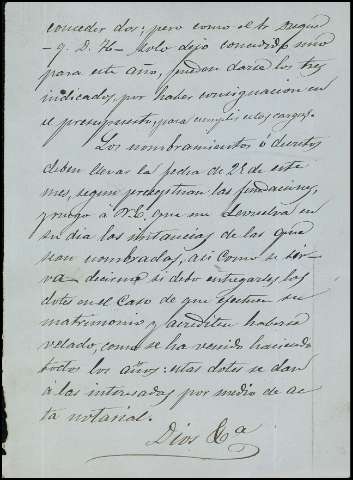 conceder dos: pero como el Sr Duque
- q. D. H- solo dejó concedido uno
para este año, pueden darse los tres
indicados, por haber consignacion en
el presupuesto, para cumplir estas cargas.
Los nombramientos ó decretos
deben llevar la fecha de 25 de este
mes, segun preceptuan las fundaciones,
y ruego á V.E. que me devuelva en
su dia las instancias de las que
son nombradas, asi como se sir-
va decirme si debo entregarles las
dotes en el caso de que efectuen su
matrimonio y acrediten haberse
velado, como se ha venido haciendo
todos los años: estas dotes se dan
á las interesadas por medio de ac-
ta notarial.
Dios &a